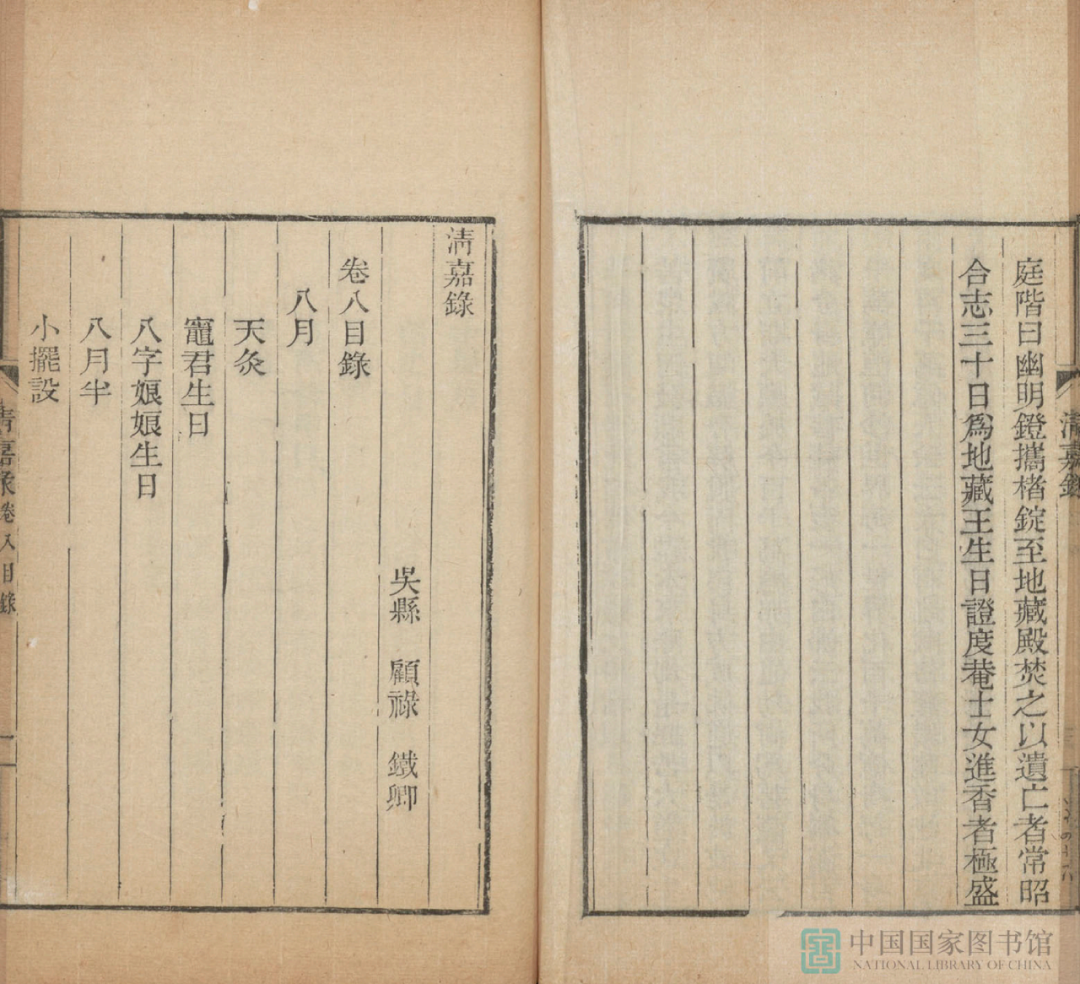 清嘉錄
庭階曰幽明鐙攜楮錠至地藏殿焚之以遺亡者常昭
合志三十日爲地藏王生日證度菴士女進香者極盛
清嘉錄
吳縣 顧祿 鐵卿
卷八目錄
八月
天灸
竈君生日
八字娘娘生日
八月半
小擺設
清嘉錄卷八目錄
中国国家图书馆
NATIONAL LIBRARY OF CHINA